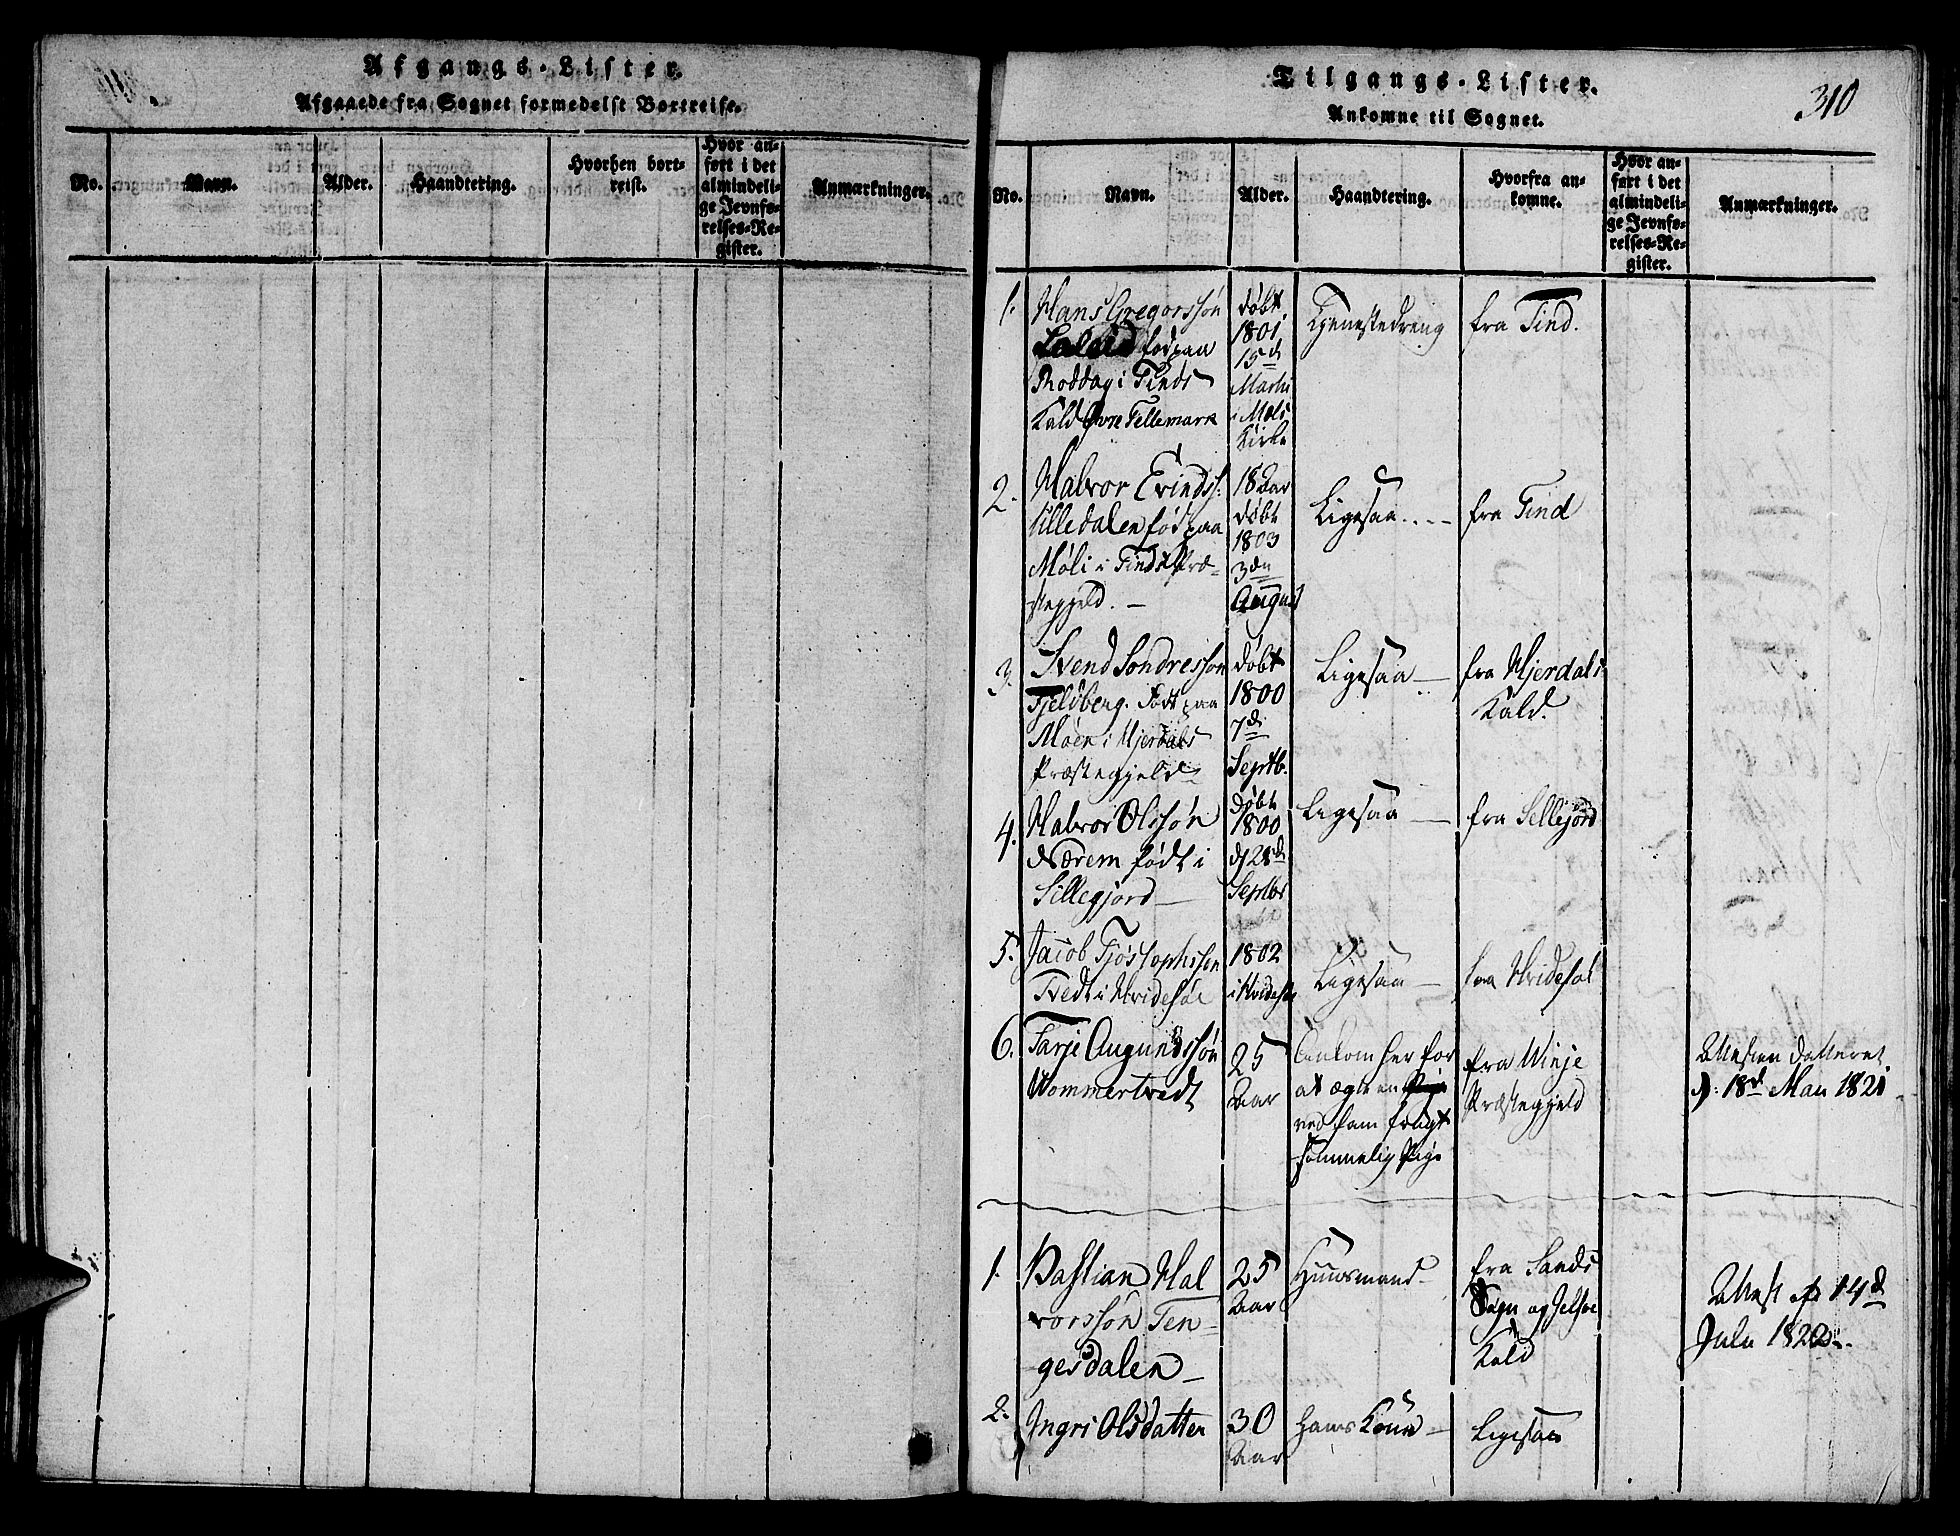 Afgangs-Lister.
Afgaaede fra Sognet formedelst Bortreise.
No.
Navn.
Alder.
Haandtering.
Hvorhen bort-
reist.
Hvor an-
ført i det
almindeli-
ge Jevnfø-
relses-Re-
gister.
Anmærkninger.
Tilgangs-Lister.
310
Ankomne til Sognet.
No.
Navn.
Alder.
Haandtering.
Hvorfra an-
komne.
Hvor an-
ført i det
almindeli-
ge Jevnfø-
relses-Re-
gister.
Anmærkninger.
1.
Hans Gregorssøn
fød paa
i Tinds
Kald Øvre Tellemark
døbt
1801
15d
Martii
i Mæls
Kirke
Tjenestedreng
fra Tind.
2.
Halvor Evindss:
Lilledalen fød paa
Møli i Tinds Præ-
stegjeld. -
18 Aar
døbt
1803
3den
August
Ligesaa....
fra Tind
3.
Svend Sondressøn
Fjeldberg. Født paa
Møen i Hjerdals
Præstegjeld
døbt
1800
7de
Septb.
Ligesaa -
fra Hjerdals
Kald.
4.
Halvor Olssøn
Nærem født i
Sillegjord -
døbt
1800
d 28d
Septbr
Ligesaa -
fra Sellejord
5.
Jacob Tjøstophssøn
Tvedt i Hvidesøe
1802
i Hvidesøe
Ligesaa -
fra Hvidesøe
6.
Tarje Augundssøn
Wommertvedt
25
Aar
Ankom her for
at ægte en
ved ham frugt-
sommelig Pige
fra Winje
Præstegjeld
Attesten datteret
d: 18d Maii 1821
1.
Bastian Hal
vorssøn Ten-
gesdalen -
25
Aar
Huusmand -
fra Sands
Sogn og Jelsøe
Kald
Attest af 14d
Julii 1820.
2.
Ingri Olsdatter
30
Aar
Hans Kone -
Ligesaa